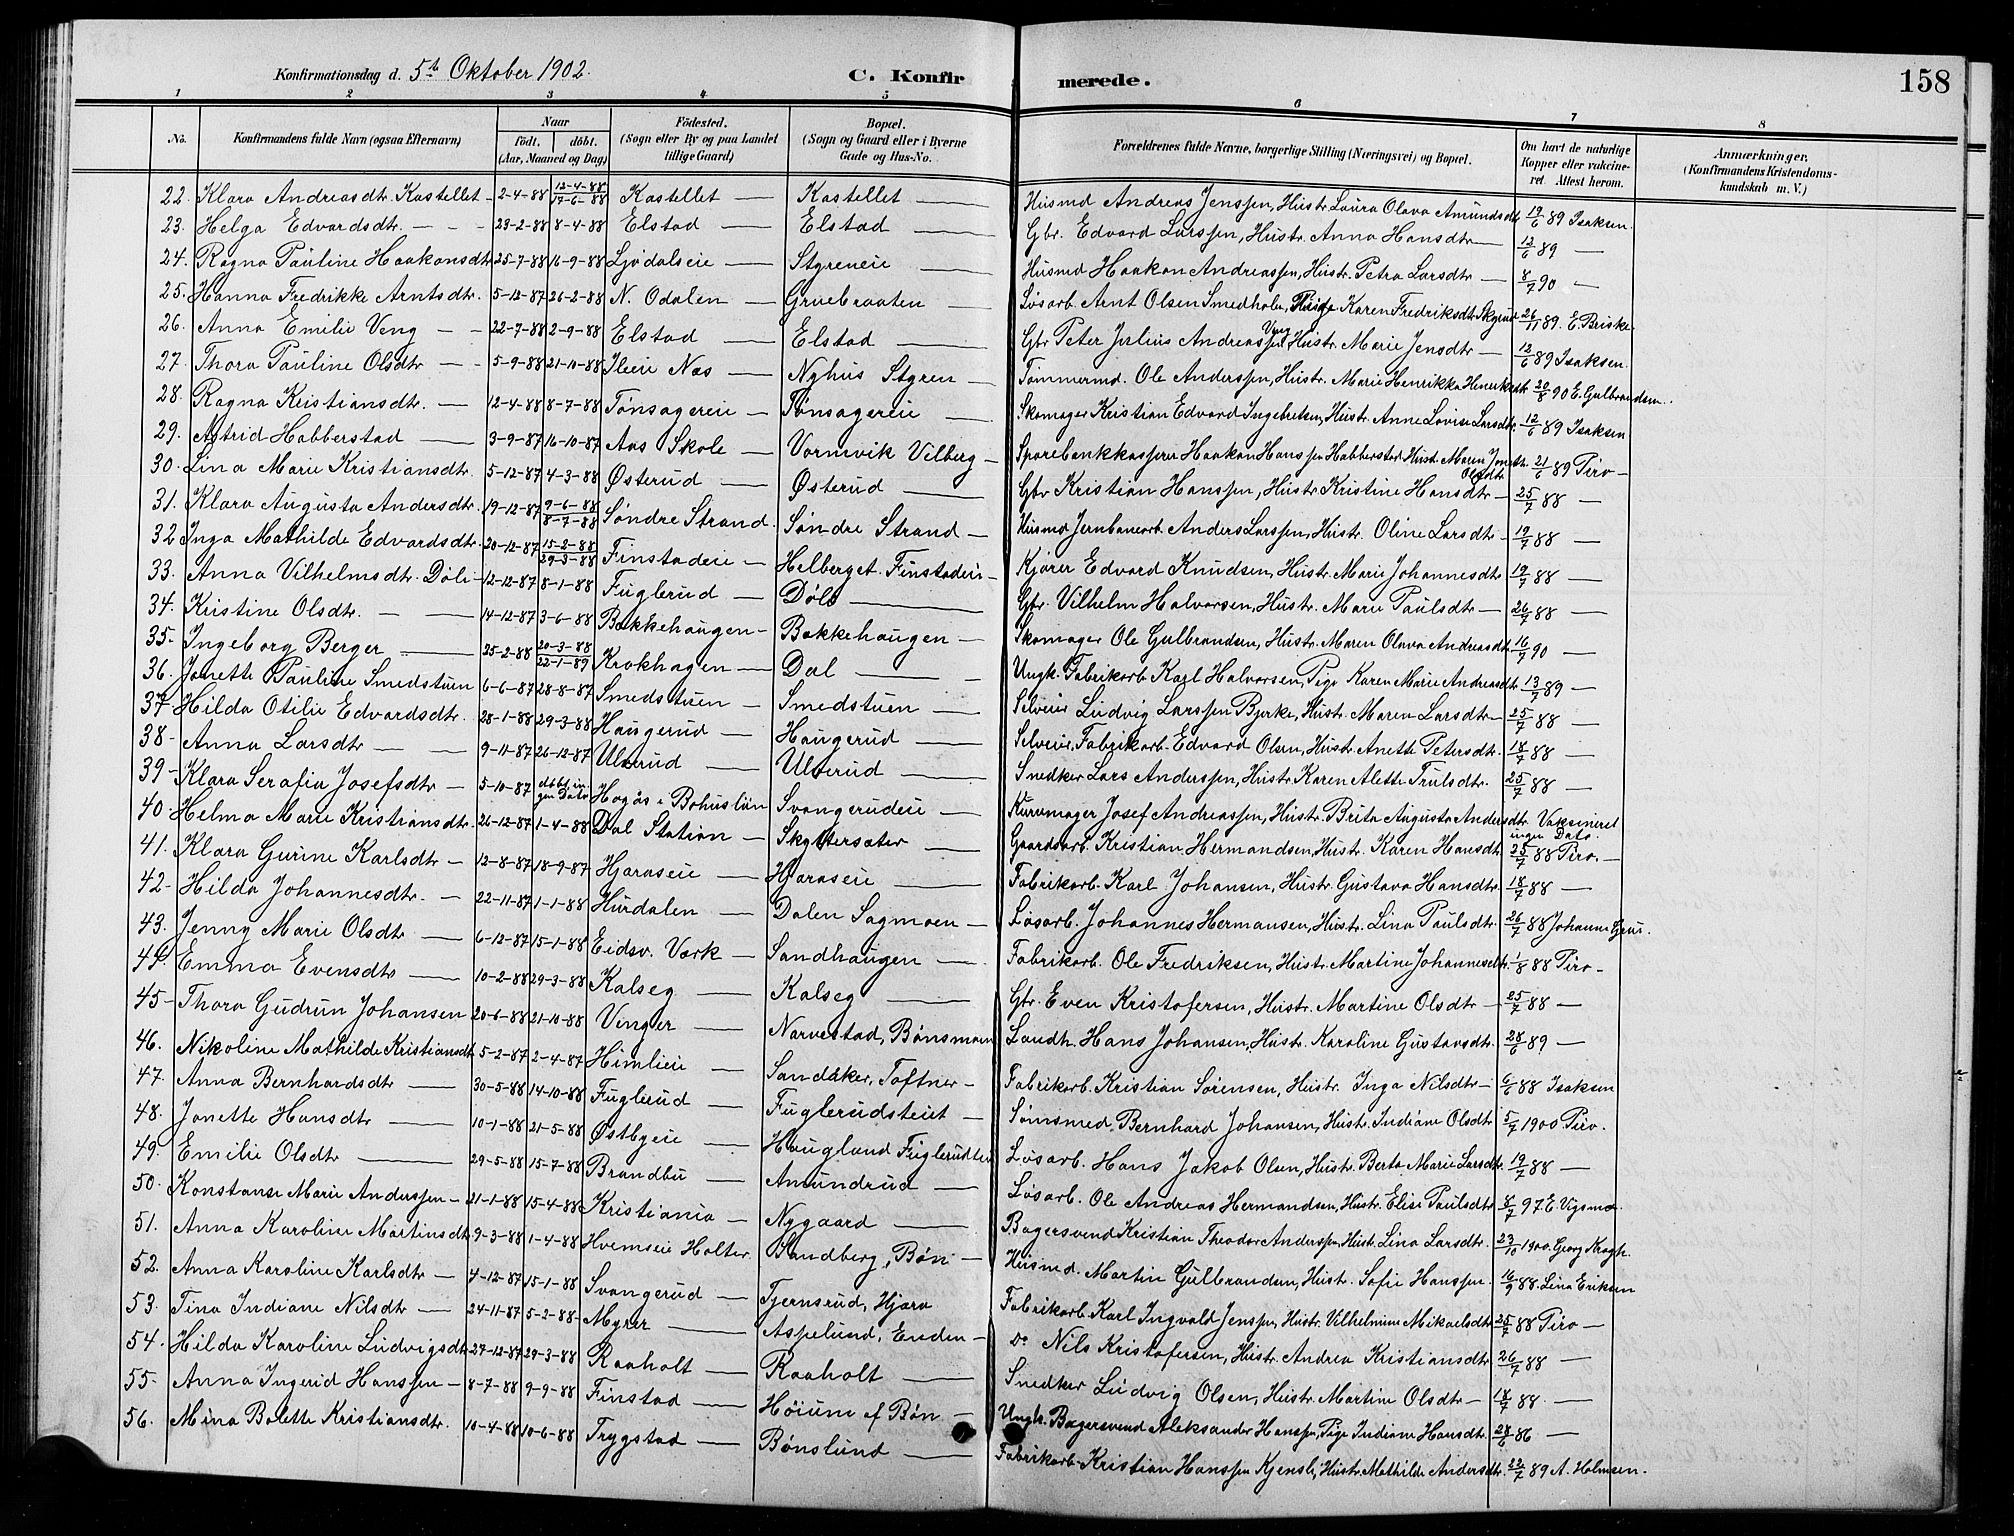 Konfirmationsdag d. 5te Oktober 1902. C. Konfirmerede. 158
1 2 3 4 5 6 7 8
No. Konfirmandens fulde Navn (ogsaa Efternavn) Naar født. døbt. (Aar, Maaned og Dag) Fødested. (Sogn eller By og paa Landet tillige Gaard) Bopæl. (Sogn og Gaard eller i Byerne Gade og Hus-No. Forældrenes fulde Navne, borgerlige Stilling (Næringsvei) og Bopæl. Om havt de naturlige Kopper eller vakcineret. Attest herom. Anmærkninger. (Konfirmandens Kristendomskundskab m. V.)
22. Klara Andreasdtr. Kastellet 2-4-88 12-4-88 17-6-88 Kastellet Kastellet Husmd Andreas Jenssen, Hustr. Laura Olava Amundsdtr. 19/6 89 Isaksen
23. Helga Edvardsdtr. 23-2-88 8-4-88 Elstad Elstad Gbr. Edvard Larssen, Hustr. Anna Hansdtr 12/6 89 —
24. Ragna Pauline Haakonsdtr 25-7-88 16-9-88 Ljødalseie Styreneie Husmd Haakon Andreassen, Hustr. Petra Larsdtr 8/7 90 —
25. Hanna Fredrikke Arntsdtr. 5-12-87 26-2-88 N. Odalen Gruebraaten Løsarb. Arnt Olsen Smedholen, Pige Karen Fredriksdtr. 26/11 89. E. Briske
26. Anna Emilie Veng 22-7-88 2-9-88 Elstad Elstad Gbr Peter Julius Andreassen Veng, Hustr. Marie Jensdtr 12/6 89 Isaksen.
27. Thora Pauline Olsdtr 5-9-88 21-10-88 Ileie Næs Nyhus Styren Tømmermd. Ole Anderssen, Hustr. Marie Henrikka Henriksdtr. 20/8 90 E. Gulbrandsen.
28. Ragna Kristiansdtr. 12-4-88 8-7-88 Tønsagereie Tønsagereie Skomager Kristian Edvard Ingebretsen, Hustr. Anne Lovise Larsdtr. 12/6 89 Isaksen
29. Astrid Habberstad 3-9-87 16-10-87 Aas Skole Vormvik Vilberg Sparebankkasserer Haakon Hanssen Habberstad Hustr. Maren Jonette Olsdtr 21/6 89 Tiro
30. Lina Marie Kristiansdtr. 5-12-87 4-3-88 Østerud Østerud Gbr Kristian Hanssen, Hustr Kristine Hansdtr 25/7 88 —
31. Klara Augusta Andersdtr. 19-12-87 9-6-88 8-7-88 Søndre Strand Søndre Strand Husmd Jernbanearb. Anders Larssen, Hustr. Oline Larsdtr 19/7 88 —
32 Inga Mathilde Edvardsdtr. 20-12-87 15-2-88 29-3-88 Finstadeie Helberget Finstadeie Kjører Edvard Knudsen, Hustr. Marie Johannesdtr 19/7 88 —
33. Anna Vilhelmsdtr. Døli 12-12-87 8-1-88 Fuglerud Døli Gbr. Vilhelm Halvorsen, Hustr. Marie Paulsdtr 26/7 88 —
34. Kristine Olsdtr. 14-12-87 3-6-88 Bakkehaugen Bakkehaugen Skomager Ole Gulbrandsen, Hustr. Maren Olava Andreasdtr 16/7 90 —
35. Ingeborg Berger 25-2-88 20-3-88 22-1-89 Krokhagen Dal Ungk. Fabrikarb. Karl Halvorsen, Pige Karen Marie Andreasdtr 13/7 89 —
36. Jonette Pauline Smedstuen 6-6-87 28-8-87 Smedstuen Smedstuen Selveier Ludvig Larssen Bjerke, Hustr. Maren Larsdtr 25/7 88 —
37 Hilda Otilie Edvardsdtr. 28-1-88 29-3-88 Haugerud Haugerud Selveier, Fabrikarb. Edvard Olsen, Hustr. Anette Petersdtr. 18/7 88 —
38 Anna Larsdtr 9-11-87 26-12-87 Ulverud Ulverud Snedker Lars Anderssen, Hustr Karen Alette Trulsdtr. 25/7 88 —
39 Klara Serafia Josefsdtr 5-10-87 døbt ingen Dato Hogås i Bohuslän Svangerudeie Kurvmager Josef Andreassen, Hustr. Brita Augusta Andersdtr. Vaksineret ingen Dato.
40. Helma Marie Kristiansdtr. 26-12-87 1-4-88 Dal Station Skyttersæter Gaardarb. Kristian Hermandsen, Hustr. Karen Hansdtr 25/7 88 Tiro —
41. Klara Gurine Karlsdtr 12-8-87 18-9-87 Hjæraseie Hjæraseie Fabrikarb. Karl Johansen, Hustr. Gustava Hansdtr. 18/7 88 —
42. Hilda Johannesdtr. 22-11-87 1-1-88 Hurdalen Dalen Sagmoen Løsarb. Johannes Hermansen, Hustr. Lina Paulsdtr 26/7 88 Johanne Grue.
43. Jenny Marie Olsdtr 6-12-87 15-1-88 Eidsv. Værk Sandhaugen Fabrikarb. Ole Fredriksen, Hustr. Martine Johannesdtr. 1/8 88 Tiro —
44. Emma Evensdtr 10-2-88 29-3-88 Kalseg Kalseg Gbr. Even Kristofersen, Hustr. Martine Olsdtr 25/7 88 —
45 Thora Gudrun Johansen 20-6-88 21-10-88 Vinger Narvestad, Bønsmoen Landh. Hans Johansen, Hustr. Karoline Gustavsdtr. 28/6 89 —
46. Nikoline Mathilde Kristiansdtr 5-2-87 2-4-87 Himlieie Sandaker, Tøftner Fabrikarb. Kristian Sørensen, Hustr. Inga Nilsdtr 6/6 88 Isaksen
47. Anna Bernhardsdtr 30-5-88 14-10-88 Fuglerud Fuglerudsteiet Sømsmed, Bernhard Johansen, Hustr. Indiane Olsdtr 5/7 1900 Tiro.
48. Jonette Hansdtr 10-1-88 21-5-88 Østbyeie Haugland Fuglerudteie Løsarb. Hans Jakob Olsen, Hustr. Berta Marie Larsdtr. 19/7 88 —
49. Emilie Olsdtr 29-5-88 15-7-88 Brandbu Amundrud Løsarb. Ole Andreas Hermandsen, Hustr. Elise Paulsdtr 8/7 97 E. Vigsmo
50. Konstanse Marie Anderssen 21-1-88 15-4-88 Kristiania Nygaard Bagersvend Kristian Theodor Anderssen, Hustr. Lina Larsdtr. 23/10 1900 Georg Kragh.
51. Anna Karoline Martinsdtr 9-3-88 1-4-88 Hvemseie Holter Sandberg, Bøn Husmd. Martin Gulbrandsen, Hustr. Sofie Hanssen. 16/9 88. Lina Eriksen
52. Anna Karoline Karlsdtr 4-12-87 15-1-88 Svangerud Tjernsrud, Hjæra Fabrikarb. Karl Ingvald Jenssen, Hustr. Vilhelmine Mikaelsdtr 25/7 88 Tiro —
53. Tina Indiane Nilsdtr 24-11-87 5-2-88 Myrer Aspelund, Enden Do Nils Kristofersen, Hustr. Andrea Kristiansdtr 26/7 88 —
54. Hilda Karoline Ludvigsdtr 27-12-87 29-3-88 Raaholt Raaholt Snedker Ludvig Olsen, Hustr. Martine Olsdtr 18/7 88 —
55. Anna Ingerid Hanssen 8-7-88 9-9-88 Finstad Høium af Bøn Ungk. Bagersvend Aleksander Hanssen, Pige Indiane Hansdtr. 28/6 86 —
56. Mina Bolette Kristiansdtr. 10-4-88 10-6-88 Trygstad Bønslund Fabrikarb. Kristian Hanssen Kjensli, Hustr. Mathilde Andersdtr. 22/7 89 A. Holmsen.